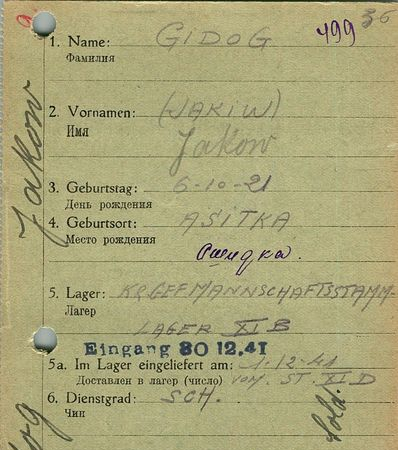 499 36
1. Name: GIDOG
Фамилия
2. Vornamen: (JAKIW)
Имя Jakow
Jakow
3. Geburtstag: 6-10-21
День рождения
4. Geburtsort: ASITKA
Место рождения
5. Lager: KR.GEF MANNSCHAFTSSTAMM-
Лагер
LAGER XI B
Eingang 30 12.41
5a. Im Lager eingeliefert am: 1-12-41
Доставлен в лагер (число) VOM. ST. XI D
6. Dienstgrad: SCH.
Чин
Sold.